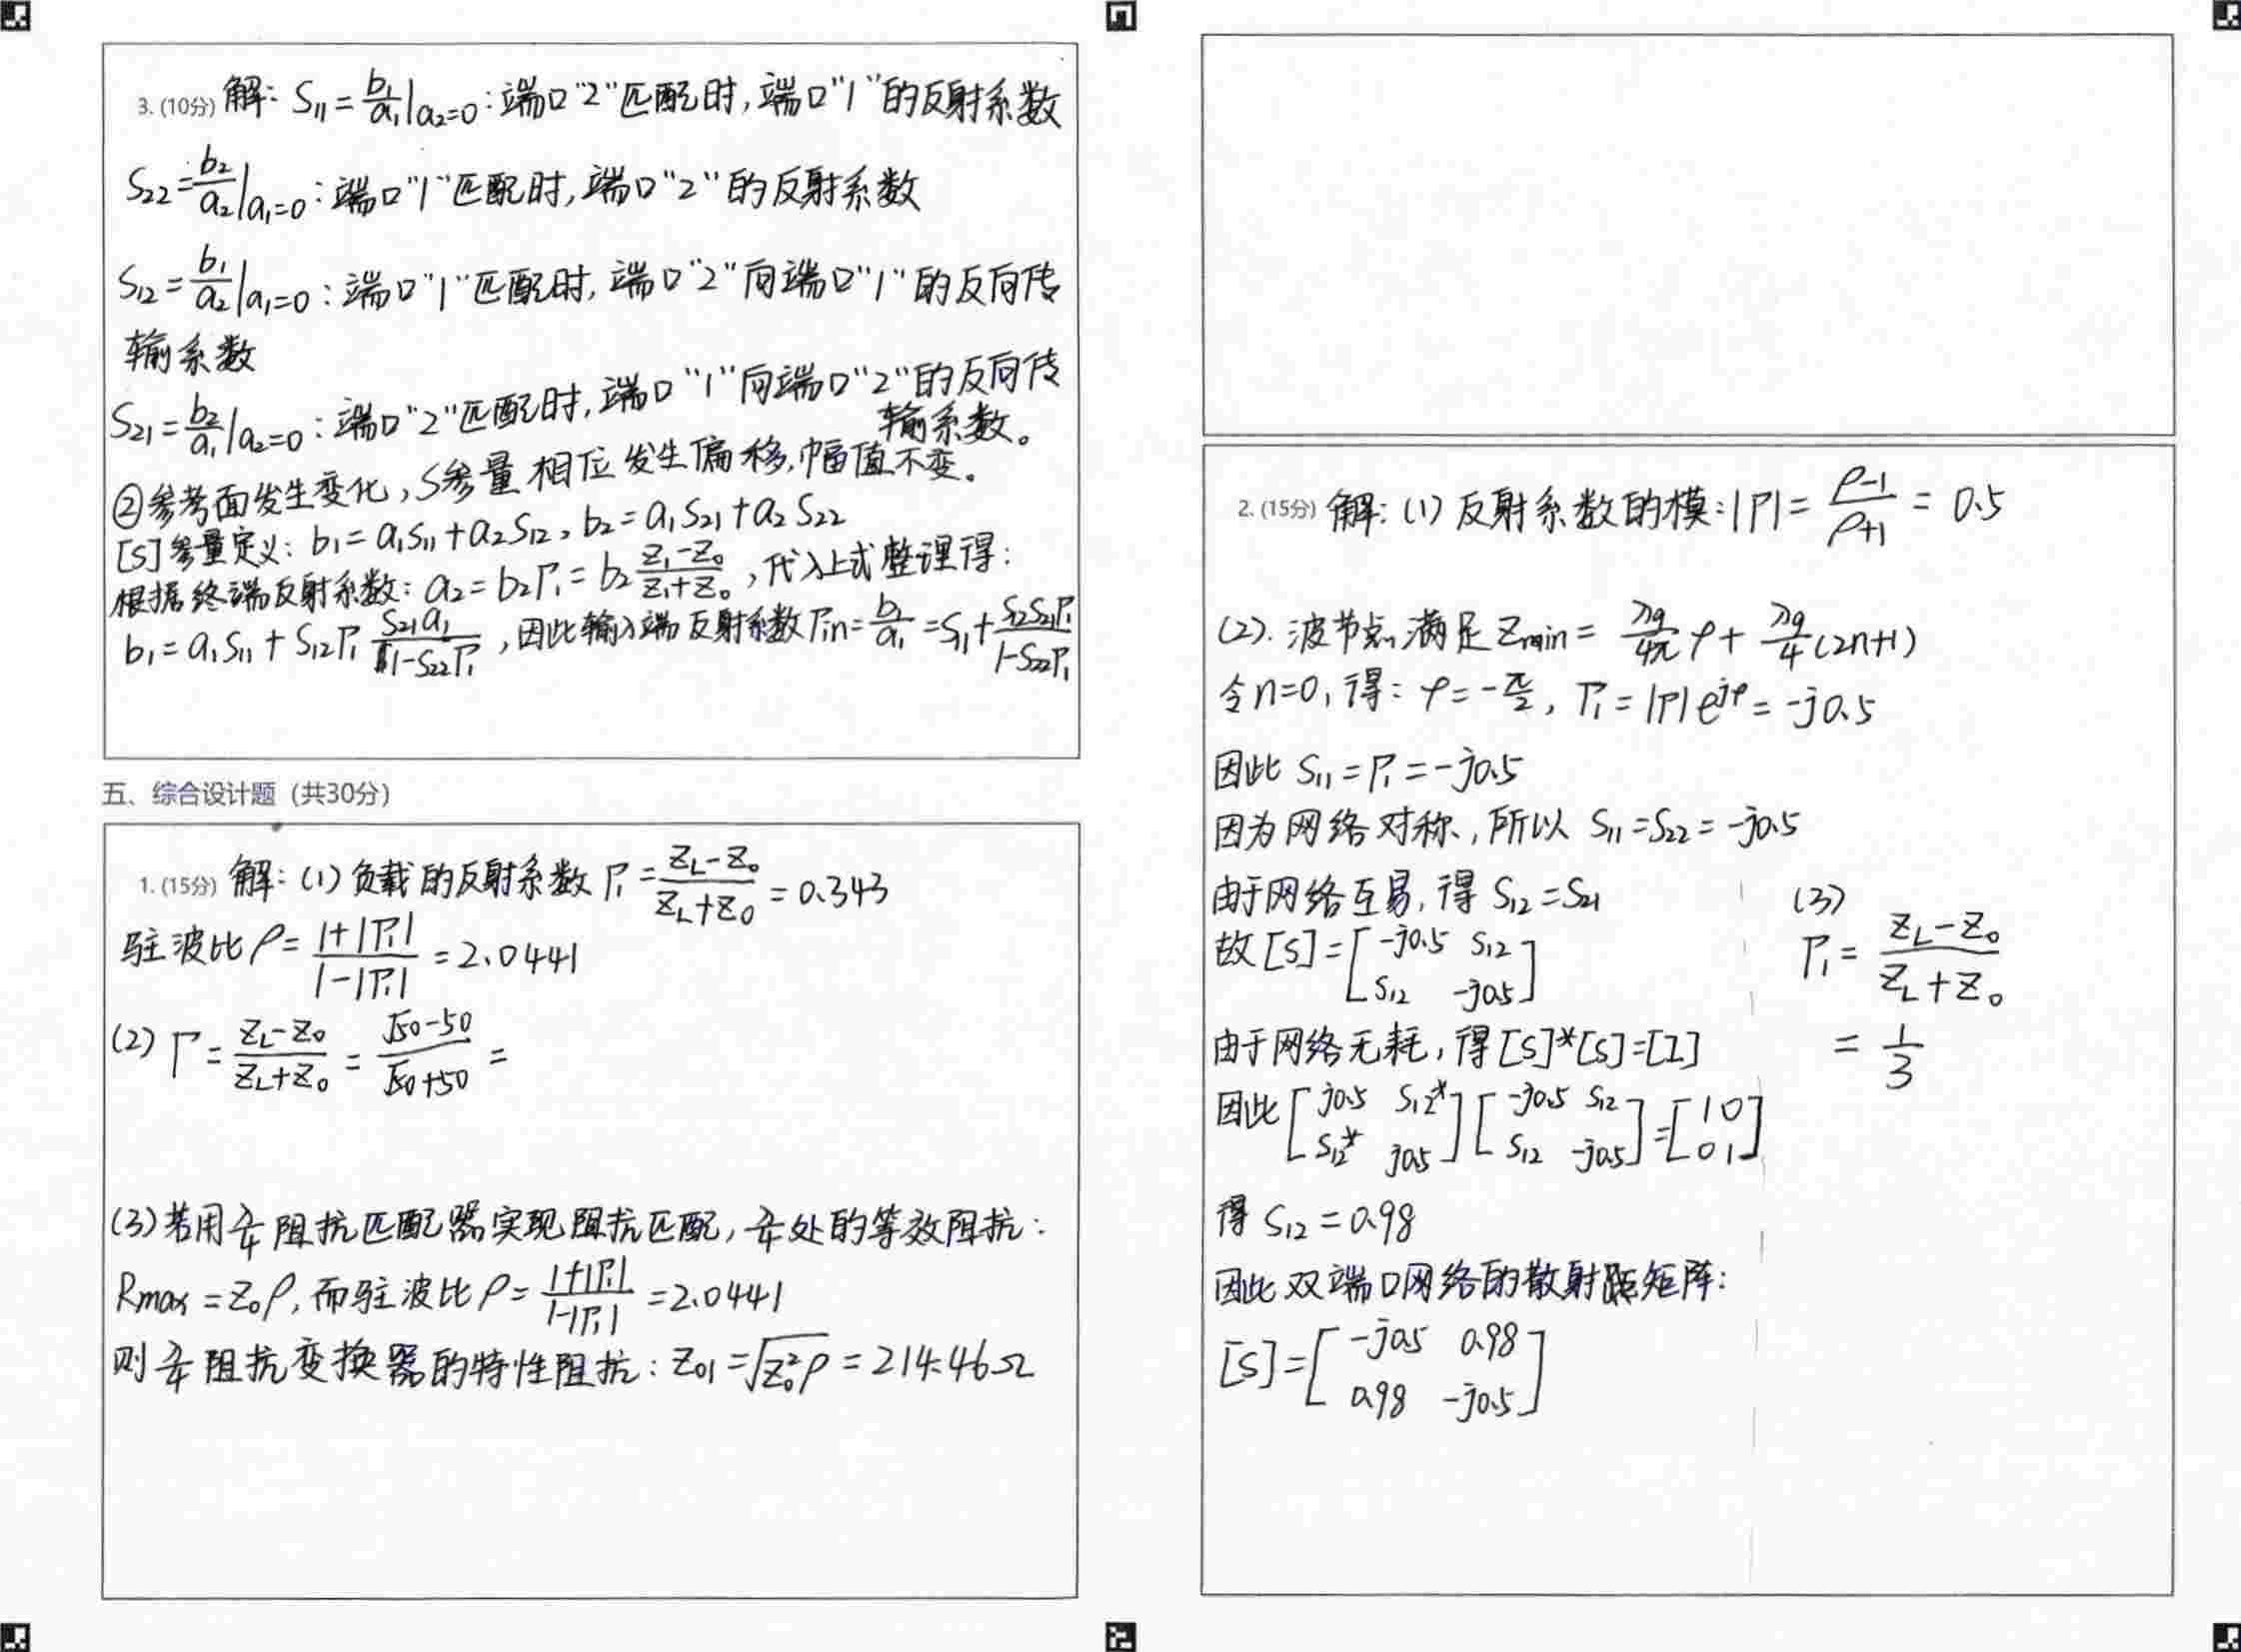 3. (10分) 解: S₁₁ = b₁/a₁|a₂=0 : 端口"2"匹配时, 端口"1"的反射系数
S₂₂ = b₂/a₂|a₁=0 : 端口"1"匹配时, 端口"2"的反射系数
S₁₂ = b₁/a₂|a₁=0 : 端口"1"匹配时, 端口"2"向端口"1"的反向传
输系数
S₂₁ = b₂/a₁|a₂=0 : 端口"2"匹配时, 端口"1"向端口"2"的反向传
输系数。
②参考面发生变化, S参量相位发生偏移, 幅值不变。
[S]参量定义: b₁ = a₁S₁₁ + a₂S₁₂, b₂ = a₁S₂₁ + a₂S₂₂
根据终端反射系数: a₂ = b₂Γ₁ = b₂ (Z₁-Z₀)/(Z₁+Z₀), 代入上式整理得:
b₁ = a₁S₁₁ + S₁₂Γ₁ S₂₁a₁/(1-S₂₂Γ₁), 因此输入端反射系数Γin = b₁/a₁ = S₁₁ + S₁₂S₂₁Γ₁/(1-S₂₂Γ₁)
五、综合设计题 (共30分)
1. (15分) 解: (1) 负载的反射系数 Γ₁ = (Z_L-Z₀)/(Z_L+Z₀) = 0.343
驻波比 ρ = (1+|Γ₁|)/(1-|Γ₁|) = 2.0441
(2) Γ = (Z_L-Z₀)/(Z_L+Z₀) = (√50-50)/(√50+50) =
(3) 若用 λ/4 阻抗匹配器实现阻抗匹配, λ/4 处的等效阻抗:
Rmax = Z₀ρ, 而驻波比 ρ = (1+|Γ₁|)/(1-|Γ₁|) = 2.0441
则 λ/4 阻抗变换器的特性阻抗: Z₀₁ = √(Z₀²ρ) = 214.46Ω
2. (15分) 解: (1) 反射系数的模: |Γ| = (ρ-1)/(ρ+1) = 0.5
(2). 波节点满足 Zmin = λg/4π φ + λg/4 (2n+1)
令n=0, 得: φ = -π/2, Γ₁ = |Γ|e^jφ = -j0.5
因此 S₁₁ = Γ₁ = -j0.5
因为网络对称, 所以 S₁₁ = S₂₂ = -j0.5
由于网络互易, 得 S₁₂ = S₂₁
故 [S] = [-j0.5 S₁₂
S₁₂ -j0.5]
由于网络无耗, 得 [S]*[S] = [I]
因此 [j0.5 S₁₂*] [-j0.5 S₁₂] = [1 0]
[S₁₂* j0.5] [S₁₂ -j0.5] [0 1]
得 S₁₂ = 0.98
因此双端口网络的散射矩阵:
[S] = [-j0.5 0.98
0.98 -j0.5]
(3)
Γ₁ = (Z_L-Z₀)/(Z_L+Z₀)
= 1/3